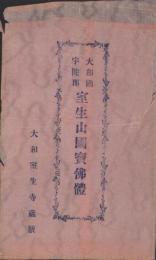 大和國
宇陀郡
室生山國寶佛體
大和室生寺蔵版